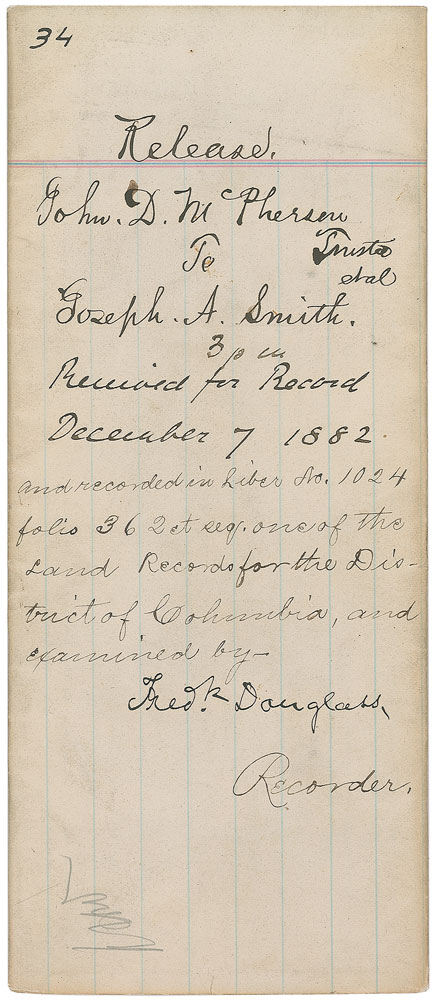 34
Release.
John. D. McPherson
To Trustee
et al
Joseph. A. Smith.
3 p m
Received for Record
December 7 1882.
and recorded in Liber No. 1024
folio 362 et seq. one of the
Land Records for the Dis-
trict of Columbia, and
examined by—
Fred.k Douglass,
Recorder.